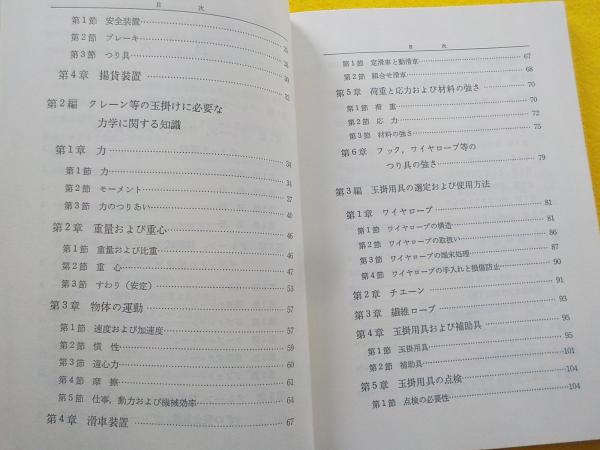 目　　次
第1節　安全装置
第2節　ブレーキ……25
第3節　つり具……28
第4章　揚貨装置……30
第2編　クレーン等の玉掛けに必要な
力学に関する知識
第1章　力……34
第1節　力……34
第2節　モーメント……37
第3節　力のつりあい……40
第2章　重量および重心……46
第1節　重量および比重……46
第2節　重　心……47
第3節　すわり（安定）……53
第3章　物体の運動……57
第1節　速度および加速度……57
第2節　慣　性……59
第3節　遠心力……60
第4節　摩　擦……61
第5節　仕事，動力および機械効率……64
第4章　滑車装置……67
目　　次
第1節　定滑車と動滑車……67
第2節　組合せ滑車……68
第5章　荷重と応力および材料の強さ……70
第1節　荷　重……70
第2節　応　力……72
第3節　材料の強さ……75
第6章　フック，ワイヤロープ等の
つり具の強さ……79
第3編　玉掛用具の選定および使用方法
第1章　ワイヤロープ……81
第1節　ワイヤロープの構造……81
第2節　ワイヤロープの取扱い……86
第3節　ワイヤロープの端末処理……87
第4節　ワイヤロープの手入れと損傷防止……90
第2章　チエーン……91
第3章　繊維ロープ……93
第4章　玉掛用具および補助具……95
第1節　玉掛用具……95
第2節　補助具……101
第5章　玉掛用具の点検……104
第1節　点検の必要性……104